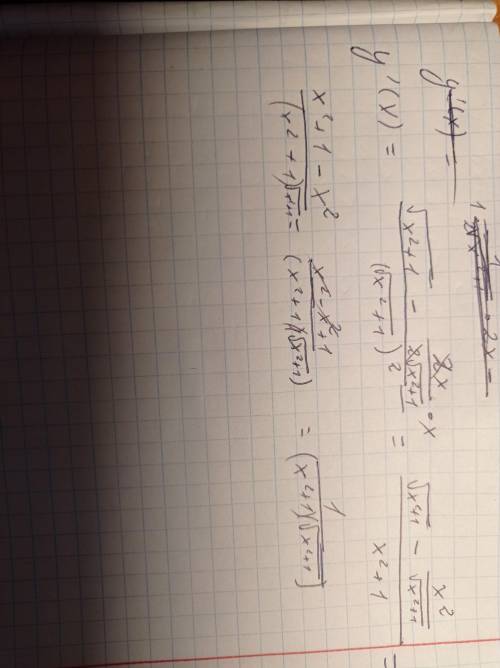 y'(x) =
y'(x) = (√(x²+1) - 2x/(2√(x²+1)) · x)/(√(x²+1))² = (√(x²+1) - x²/√(x²+1))/(x²+1) =
(x²+1-x²)/((x²+1)√(x²+1)) = (x²-x²+1)/((x²+1)(√(x²+1))) = 1/((x²+1)(√(x²+1)))